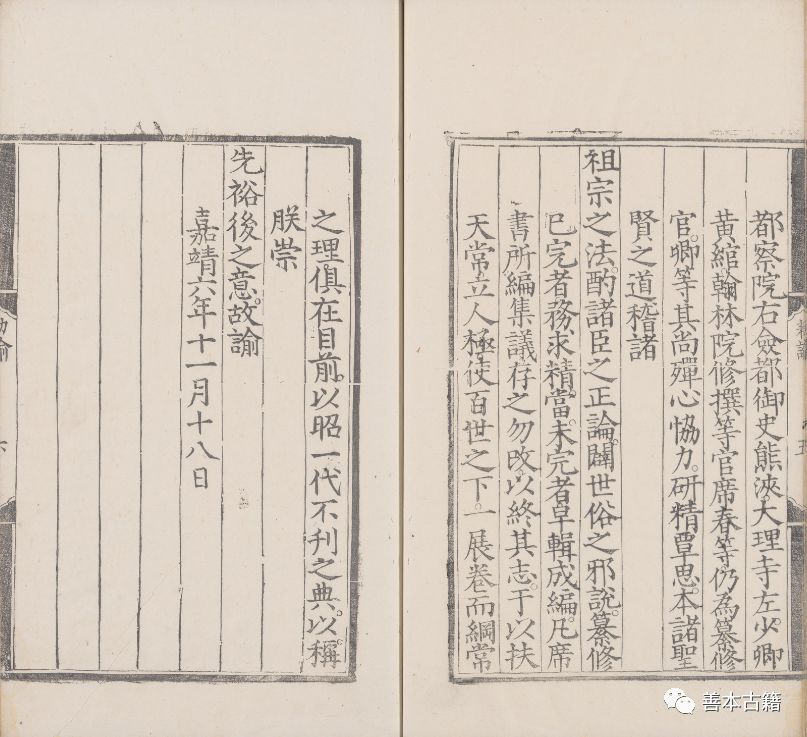 都察院右僉都御史熊浹大理寺左少卿
黄綰翰林院修撰等官席春等仍為纂修
官卿等其尚殫心恊力研精覃思本諸聖
賢之道稽諸
祖宗之法酌諸臣之正論闢世俗之邪說纂修
已完者務求精當未完者早輯成編凡席
書所編集議存之勿改以終其志于以扶
天常立人極使百世之下一展卷而綱常
之理俱在目前以昭一代不刊之典以稱
朕崇
先裕後之意故諭
嘉靖六年十一月十八日
勑諭
六
五
善本古籍